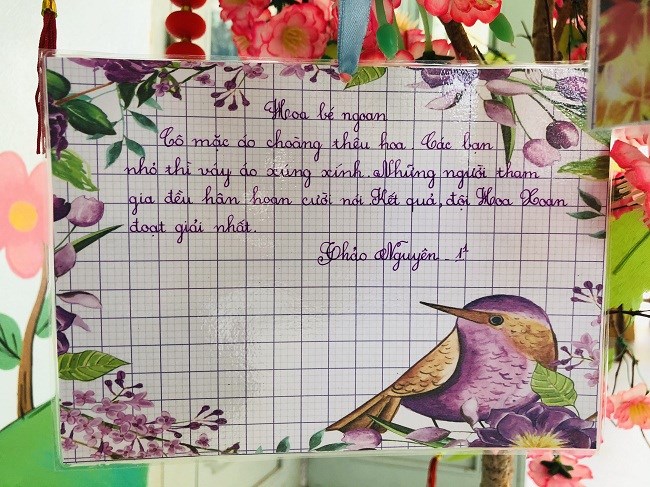 Hoa bé ngoan
Cô mặc áo choàng thêu hoa. Các bạn
nhỏ thì váy áo xúng xính. Những người tham
gia đều hân hoan cười nói Kết quả, đội Hoa Xoan
đoạt giải nhất.
Thảo Nguyên - 1⁴